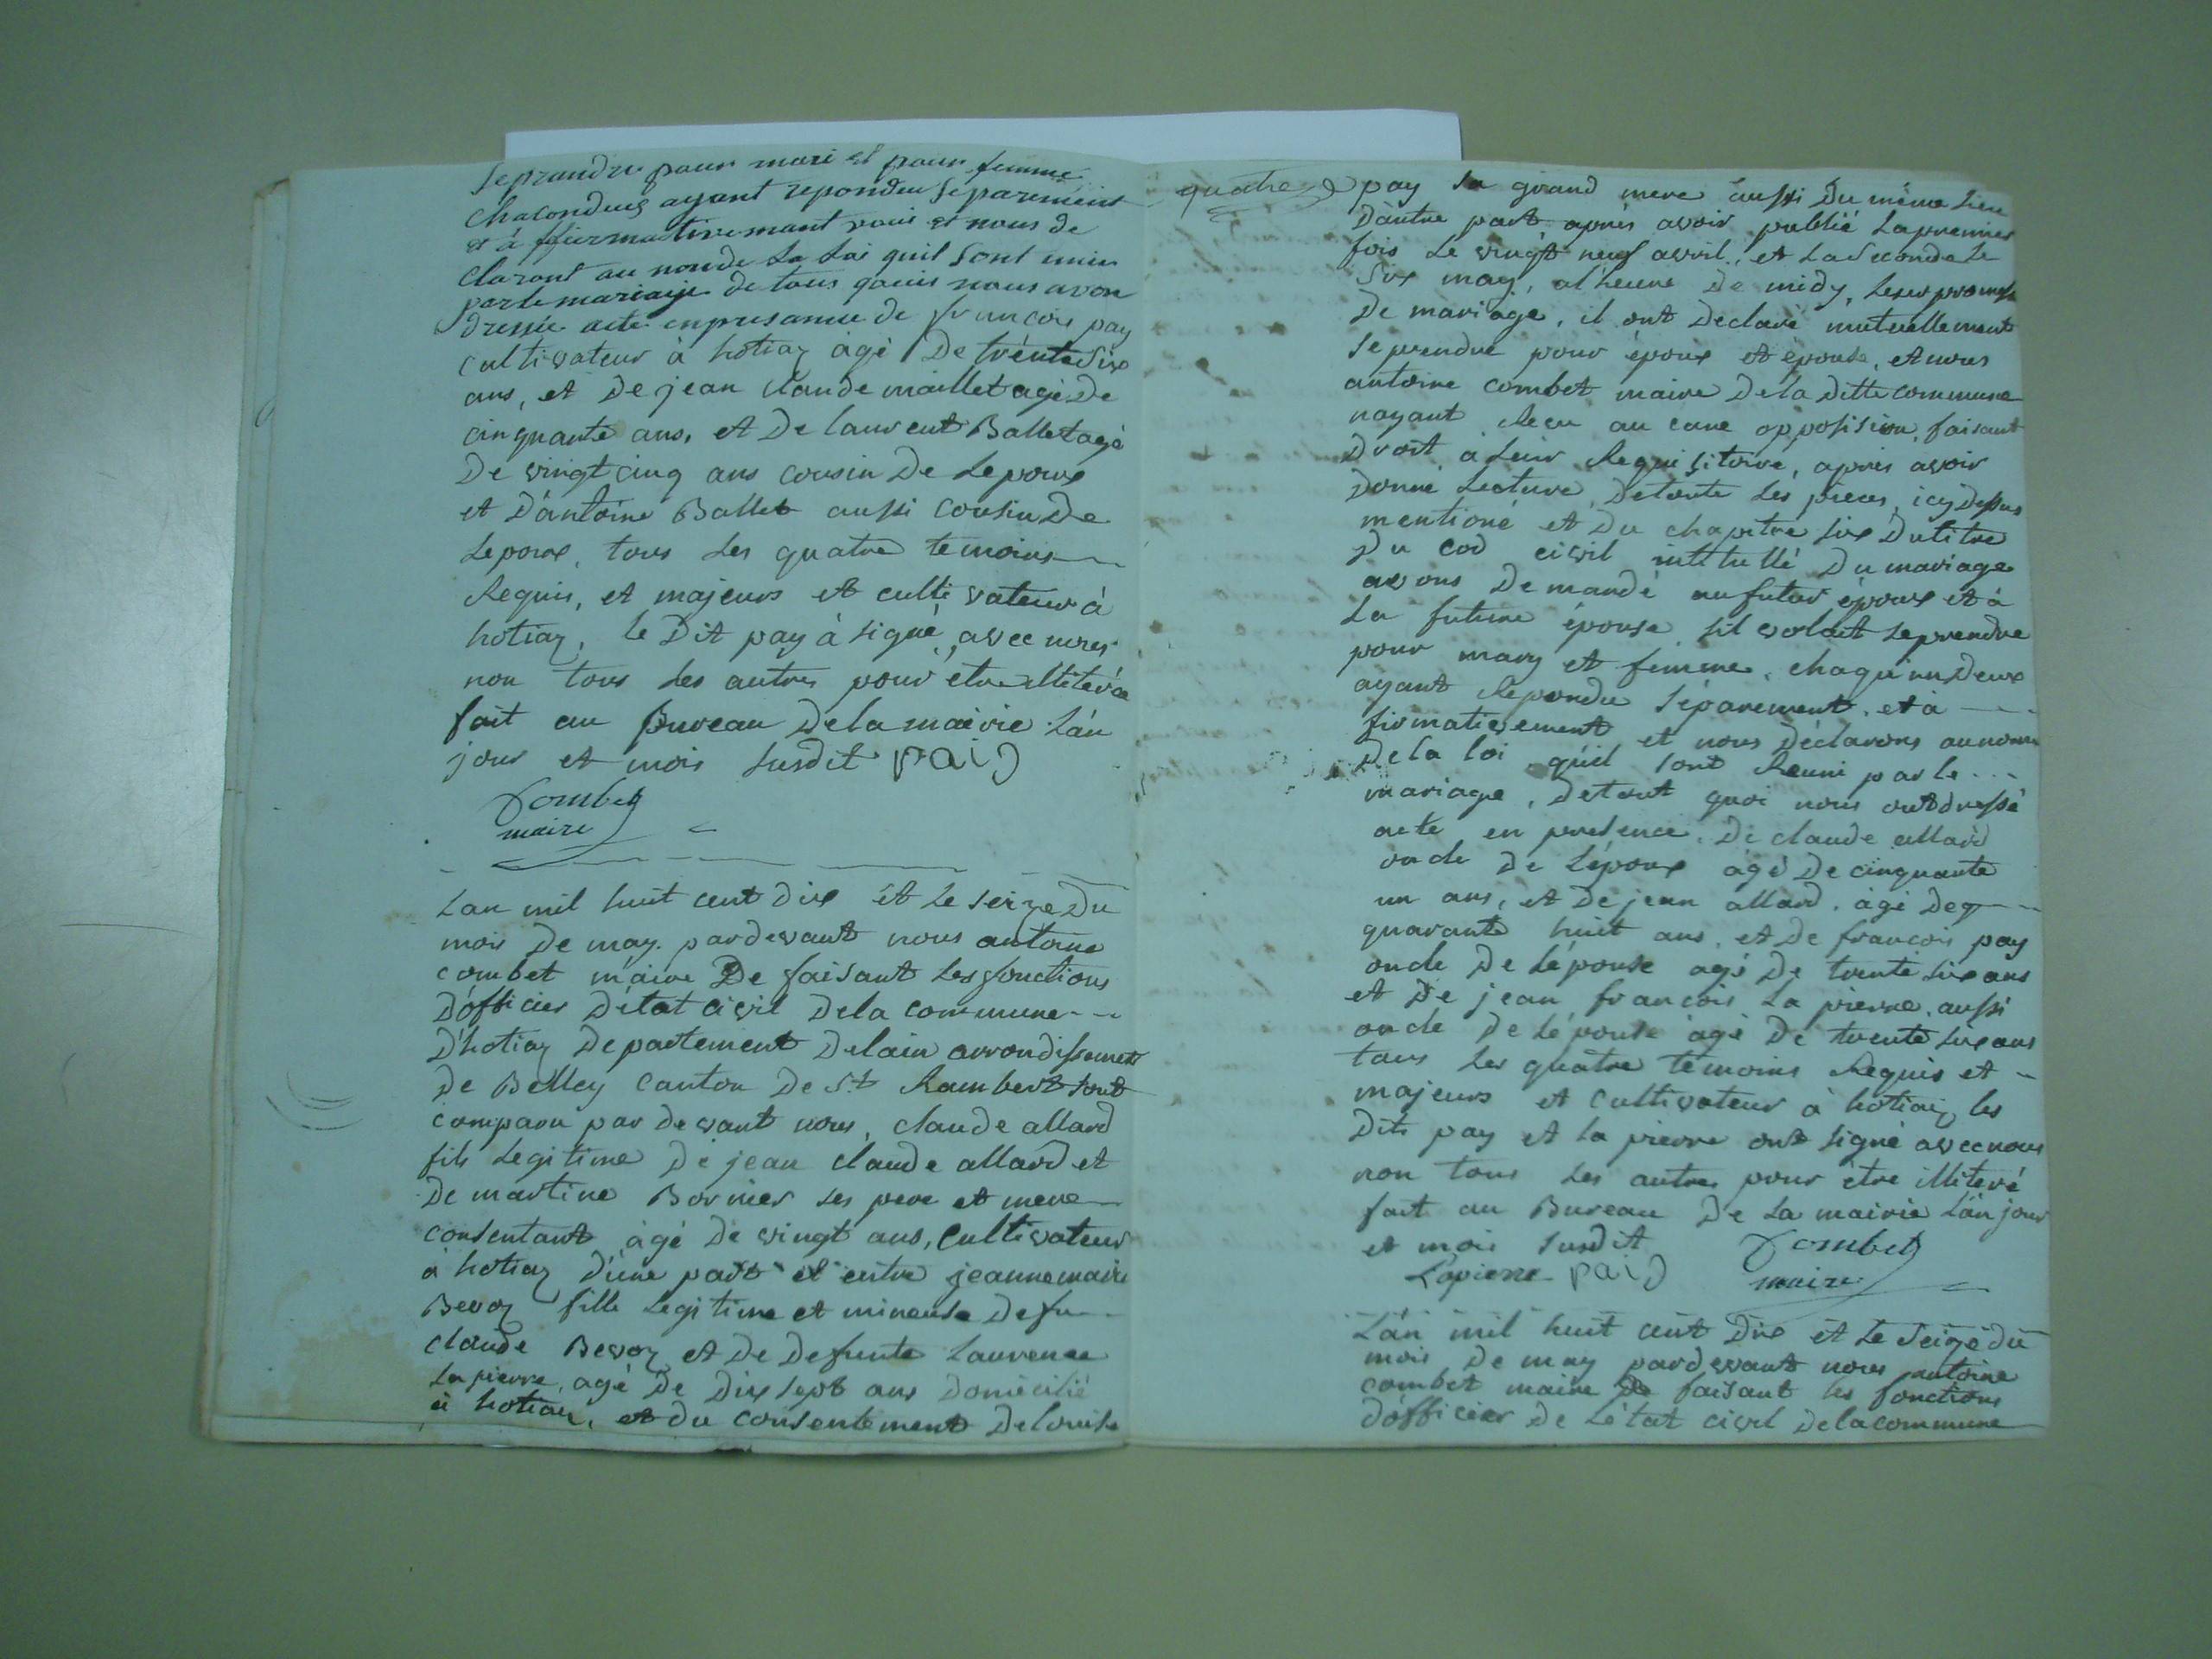 Se prandre pour mari et pour femme
Chacondeus ayant repondeu Séparemeint
et à ffiermativemant voui et nous de
Claront au nonde La Loi quil Sont unin
par le mariaije de tous qouis nous avon
dressée acte en presance de francois pay
cultivateur à hotiaz agé De trénte Six
ans, et De jean claude maillet agé De
cinquante ans, et De laurent Ballet agé
De vingt cinq ans cousin De Lepoux
et D'antoine Ballet aussi Cousin De
Lepoux, tous Les quatre temoins
Requis, et majeurs et cultivateur à
hotiaz, le Dit pay à signé, avec nous
non tous Les autres pour étre illiteré
fait au Bureau De la mairie L'án
jour et mois Susdit paiJ
Combet
maire
Lan mil huit cent Dix et Le Seize Du
mois De may. pardevant nous antoine
combet maire De faisant Les fonctions
D'officier D'état civil De la commune
D'hotiaz Departement De lain arrondissement
De Belley Canton De St Rambert sont
comparu par devant nous, claude allard
fils Legitime De jean claude allard et
De martine Bornier Ses pere et mere
consentant agé De vingt ans, Cultivateur
à hotiaz D'une part et entre jeanne marie
Bevoz fille Legitime et mineuse De fu
claude Bevoz et De Defunte Laurence
La pierre, agé De Dix Sept ans Domicilié
à hotiaz, et du consentement De louise
quatre
pay sa grand mere aussi Du même Lieu
D'autre part aprés avoir publié La premier
fois Le vingt neuf avril, et La Seconde Le
Six may, a l'heure De midy, Leur promesse
De mariage, il ont Declaré mutuellement
Se prendre pour époux et épouse, et nous
antoine combet maire De la Ditte commune
nayant Recu au cune opposision, faisant
Droit à Leur Requisitoire, aprés avoir
Donné Lecture De toute Lés pieces, icy Dessus
mentioné et Du chapitre Six Du titre
Du cod civil intitullé Du mariage
avons Demandé au futur époux et à
La future épouse Sil volait Se prendre
pour mary et femme, chaqu'un Deux
ayant Repondu Séparement, et à
firmativement et nous Déclarons au nom
De la loi qu'il sont Reuni par le
mariage, De tout quoi nous ont dressé
acte en presence, De claude allard
oncle De L'époux agé De cinquante
un ans, et De jean allard, agé De
quarante huit ans, et De francois pay
oncle De Lépouse agé De trente Six ans
et De jean francois La pierre, aussi
oncle De Lépouse agé De trente Six ans
tous Les quatre témoins Requis et
majeurs et Cultivateur à hotiaz les
Dits pay et la pierre ont signé avec nous
non tous Les autres pour étre illiteré
fait au Bureau De La mairie L'án jour
et mois Susdit Combet
Lapierre paiJ maire
L'án mil huit cent Dix et Le Seize du
mois De may pardevant nous antoine
combet maire De faisant les fonctions
d'officier De L'état civil De la commune